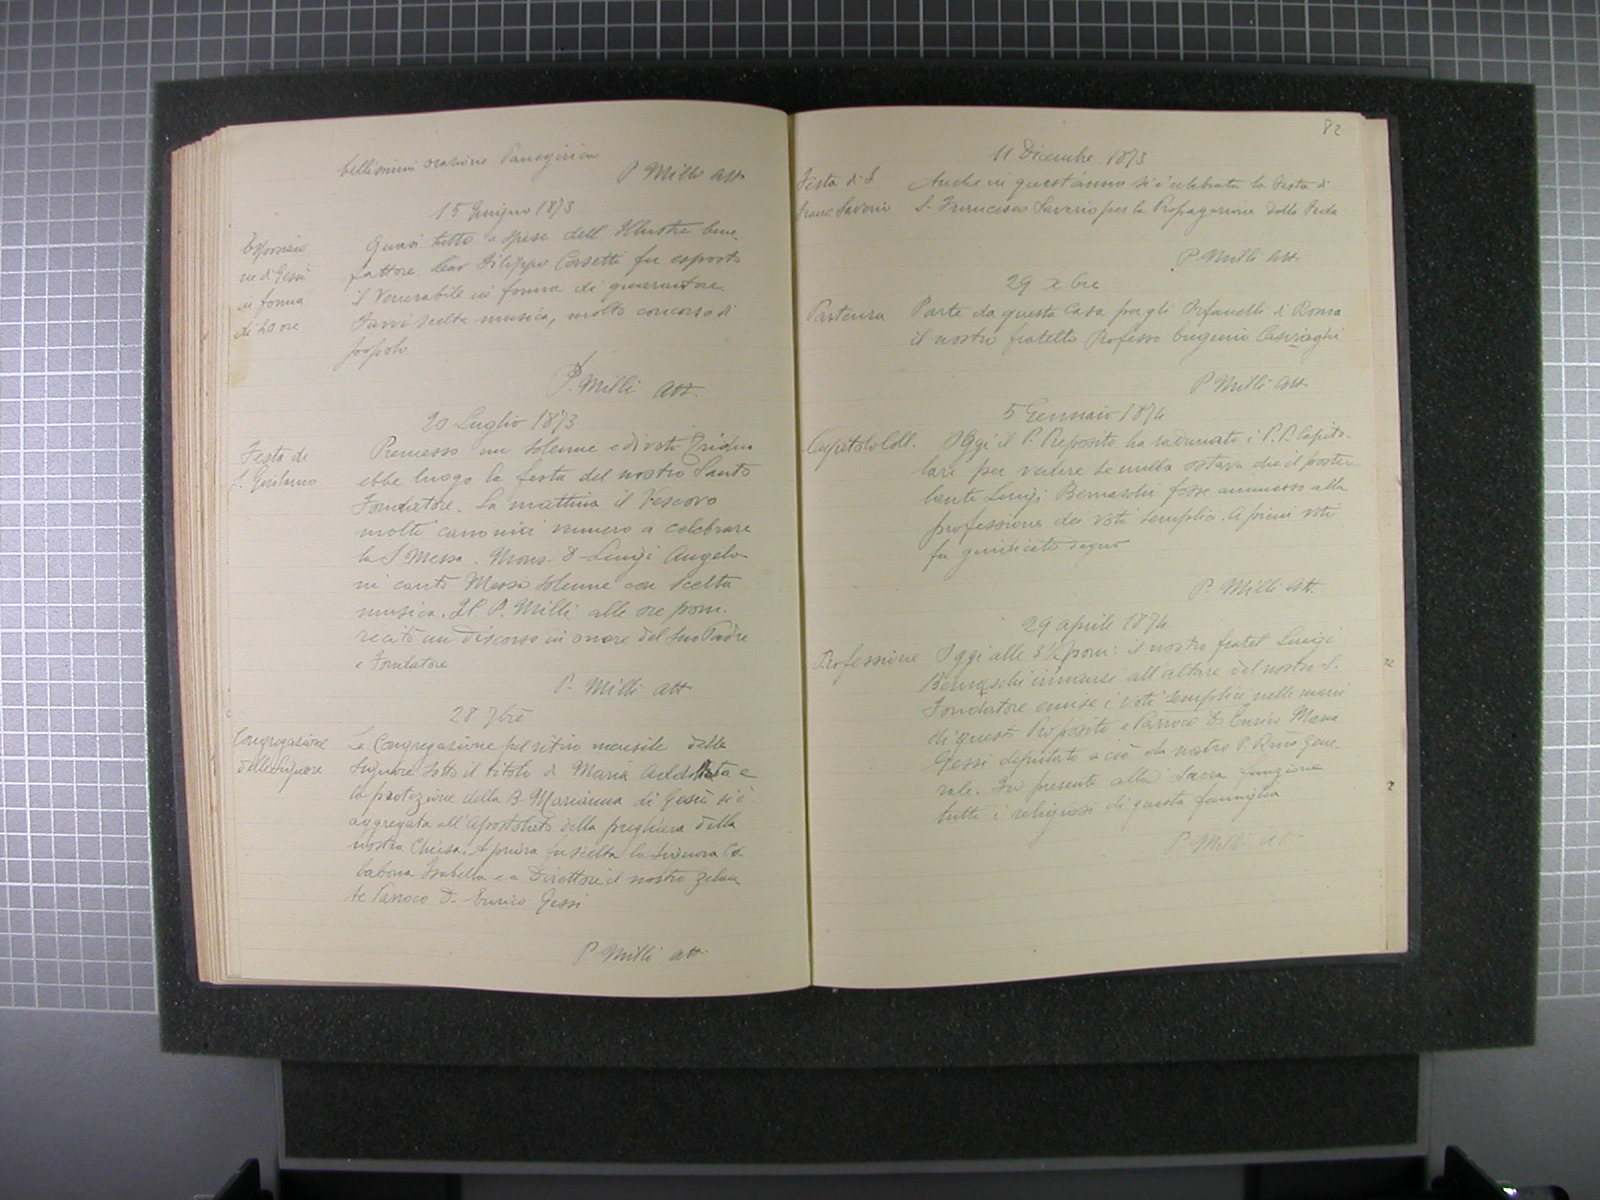 bellissimi orazione Panegirica
P Milli Att
15 Giugno 1873
Esposizio
ne di Gesù
in forma
di 40 ore
Quasi tutto a spese dell'Illustre bene
fattore Cav Filippo Corsetti fu esposto
il Venerabile in forma di quarantore.
Furvi scelta musica, molto concorso di
popolo
P. Milli Att.
20 Luglio 1873
Festa di
S. Girolamo
Premesso un solenne e divoto Triduo
ebbe luogo la festa del nostro Santo
Fondatore. La mattina il Vescovo
molti canonici vennero a celebrare
la S. Messa. Mons. D Luigi Angelo
ni cantò Messa solenne con scelta
musica. Il P. Milli alle ore pom.
recitò un discorso in onore del suo Padre
e Fondatore
P. Milli Att
28 7bre
Congregazione
delle Signore
La Congregazione pel ritiro mensile delle
Signore sotto il titolo di Maria Addolorata e
la protezione della B. Marianna di Gesù si è
aggregata all'apostolato della preghiera della
nostra Chiesa. A priora fu scelta la Signora Co
labona Isabella e a Direttore il nostro zelan
te Parroco D. Enrico Gessi
P Milli Att.
82
11 Dicembre 1873
Festa di S
Franc Saverio
Anche in quest'anno si è celebrata la Festa di
S. Francesco Saverio per la Propagazione della Fede
P. Milli Att.
29 Xbre
Partenza
Parte da questa Casa per gli Orfanelli di Roma
il nostro fratello Professo Eugenio Casiraghi
P Milli Att
5 Gennaio 1874
Capitolo Coll.
Oggi il P. Preposito ha radunato i P.P. Capito-
lari per vedere se nulla ostava che il postu
lante Luigi Bernaschi fosse ammesso alla
professione dei voti semplici. A pieni voti
fu giudicato degno
P. Milli Att.
29 aprile 1874
Professione
Oggi alle 3 ½ pom: il nostro fratel Luigi
Bernaschi innanzi all'altare del nostro S.
Fondatore emise i voti semplici nelle mani
di questo Preposito e Parroco D. Enrico Maria
Gessi deputato a ciò da nostro P. Rmo Gene-
rale. Fu presente alla Sacra funzione
tutti i religiosi di questa famiglia
P Milli Att